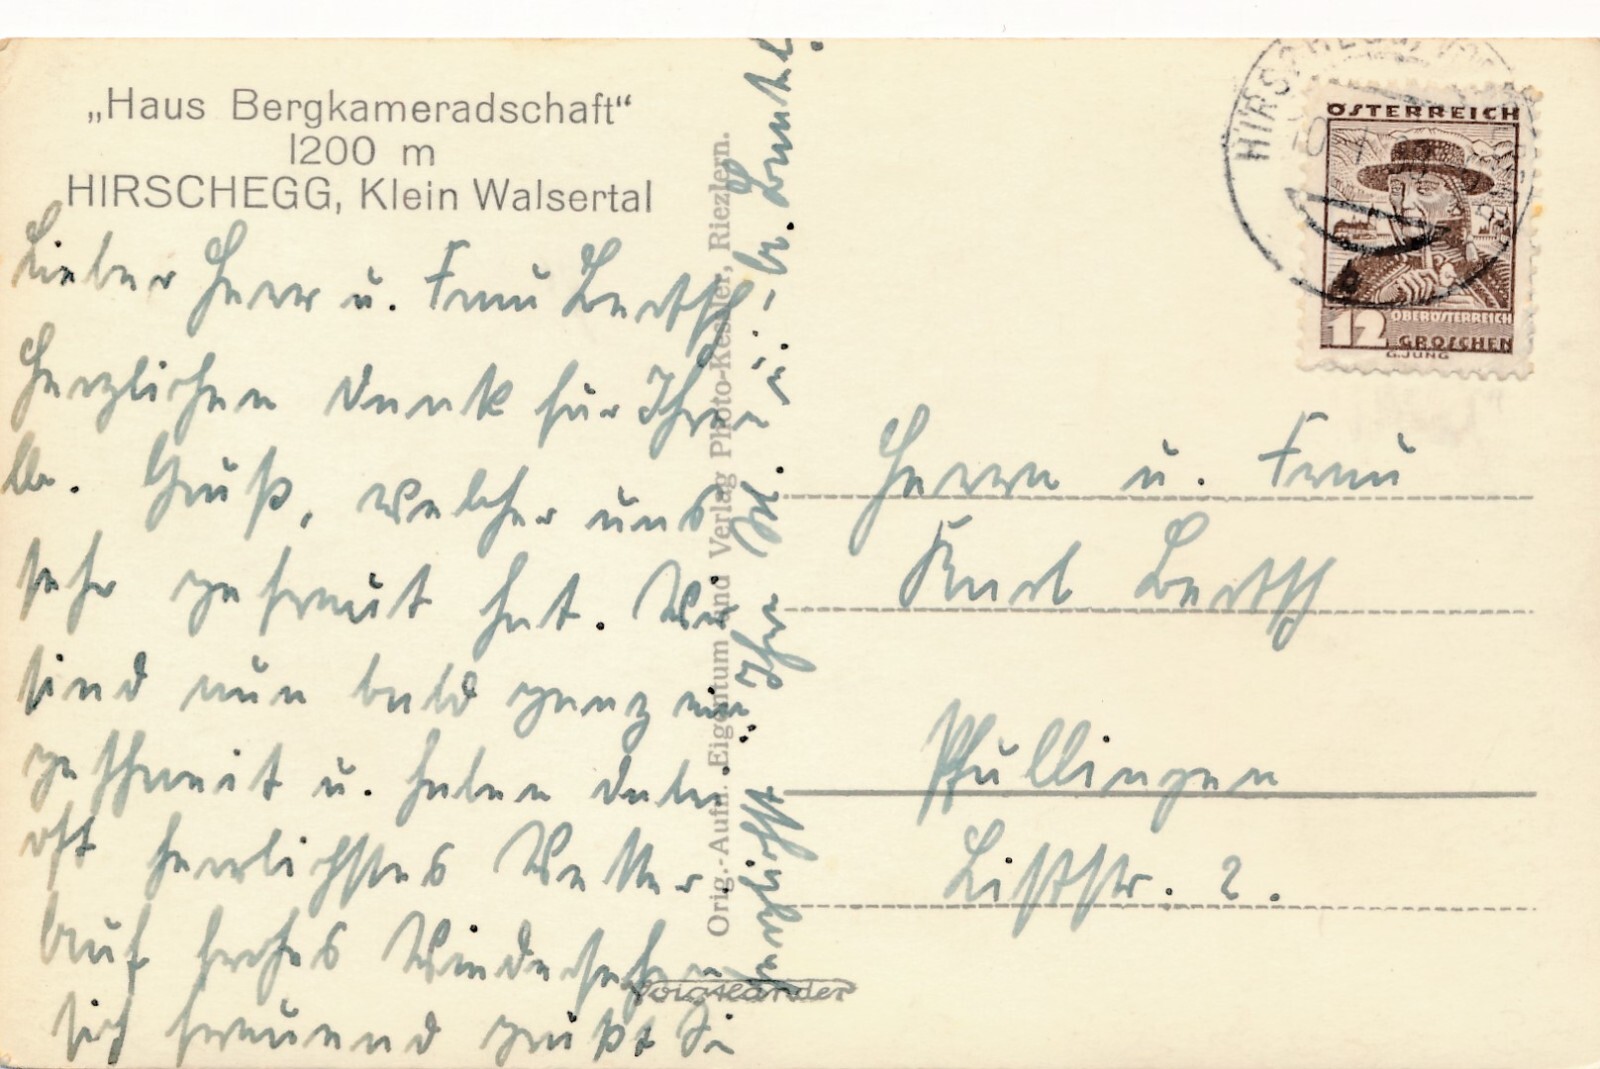 „Haus Bergkameradschaft“
1200 m
HIRSCHEGG, Klein Walsertal
Lieber Herr u. Frau Bertsch,
Herzlichen Dank für Ihren
lb. Gruß, welcher uns
sehr gefreut hat. Wir
sind nun bald ganz ein
geschneit u. haben dabei
oft herrlichstes Wetter.
Auf frohes Wiedersehen
sich freuend grüßt Sie
herzlichst Ihre
Orig.-Aufn. Eigentum und Verlag Photo-Kessler, Riezlern.
Voigtländer
HIRSCHEGG
ÖSTERREICH
12
OBERÖSTERREICH
GROSCHEN
G.JUNG
Herrn u. Frau
Karl Bertsch
Pfullingen
Liststr. 2.